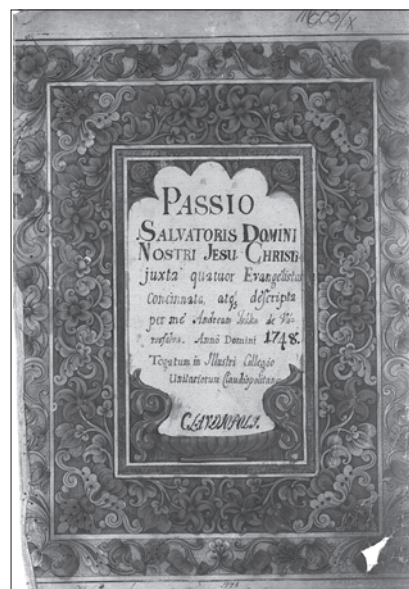 PASSIO
SALVATORIS DOMINI
NOSTRI JESU CHRISTI
juxta quatuor Evangelistas
Concinnata, atqs descripta
per me Andream de
Annô Domini 1748.
Togatum in Illustri Collegio
Unitariorum Claudiopolitano
CLAUDIOPOLI.